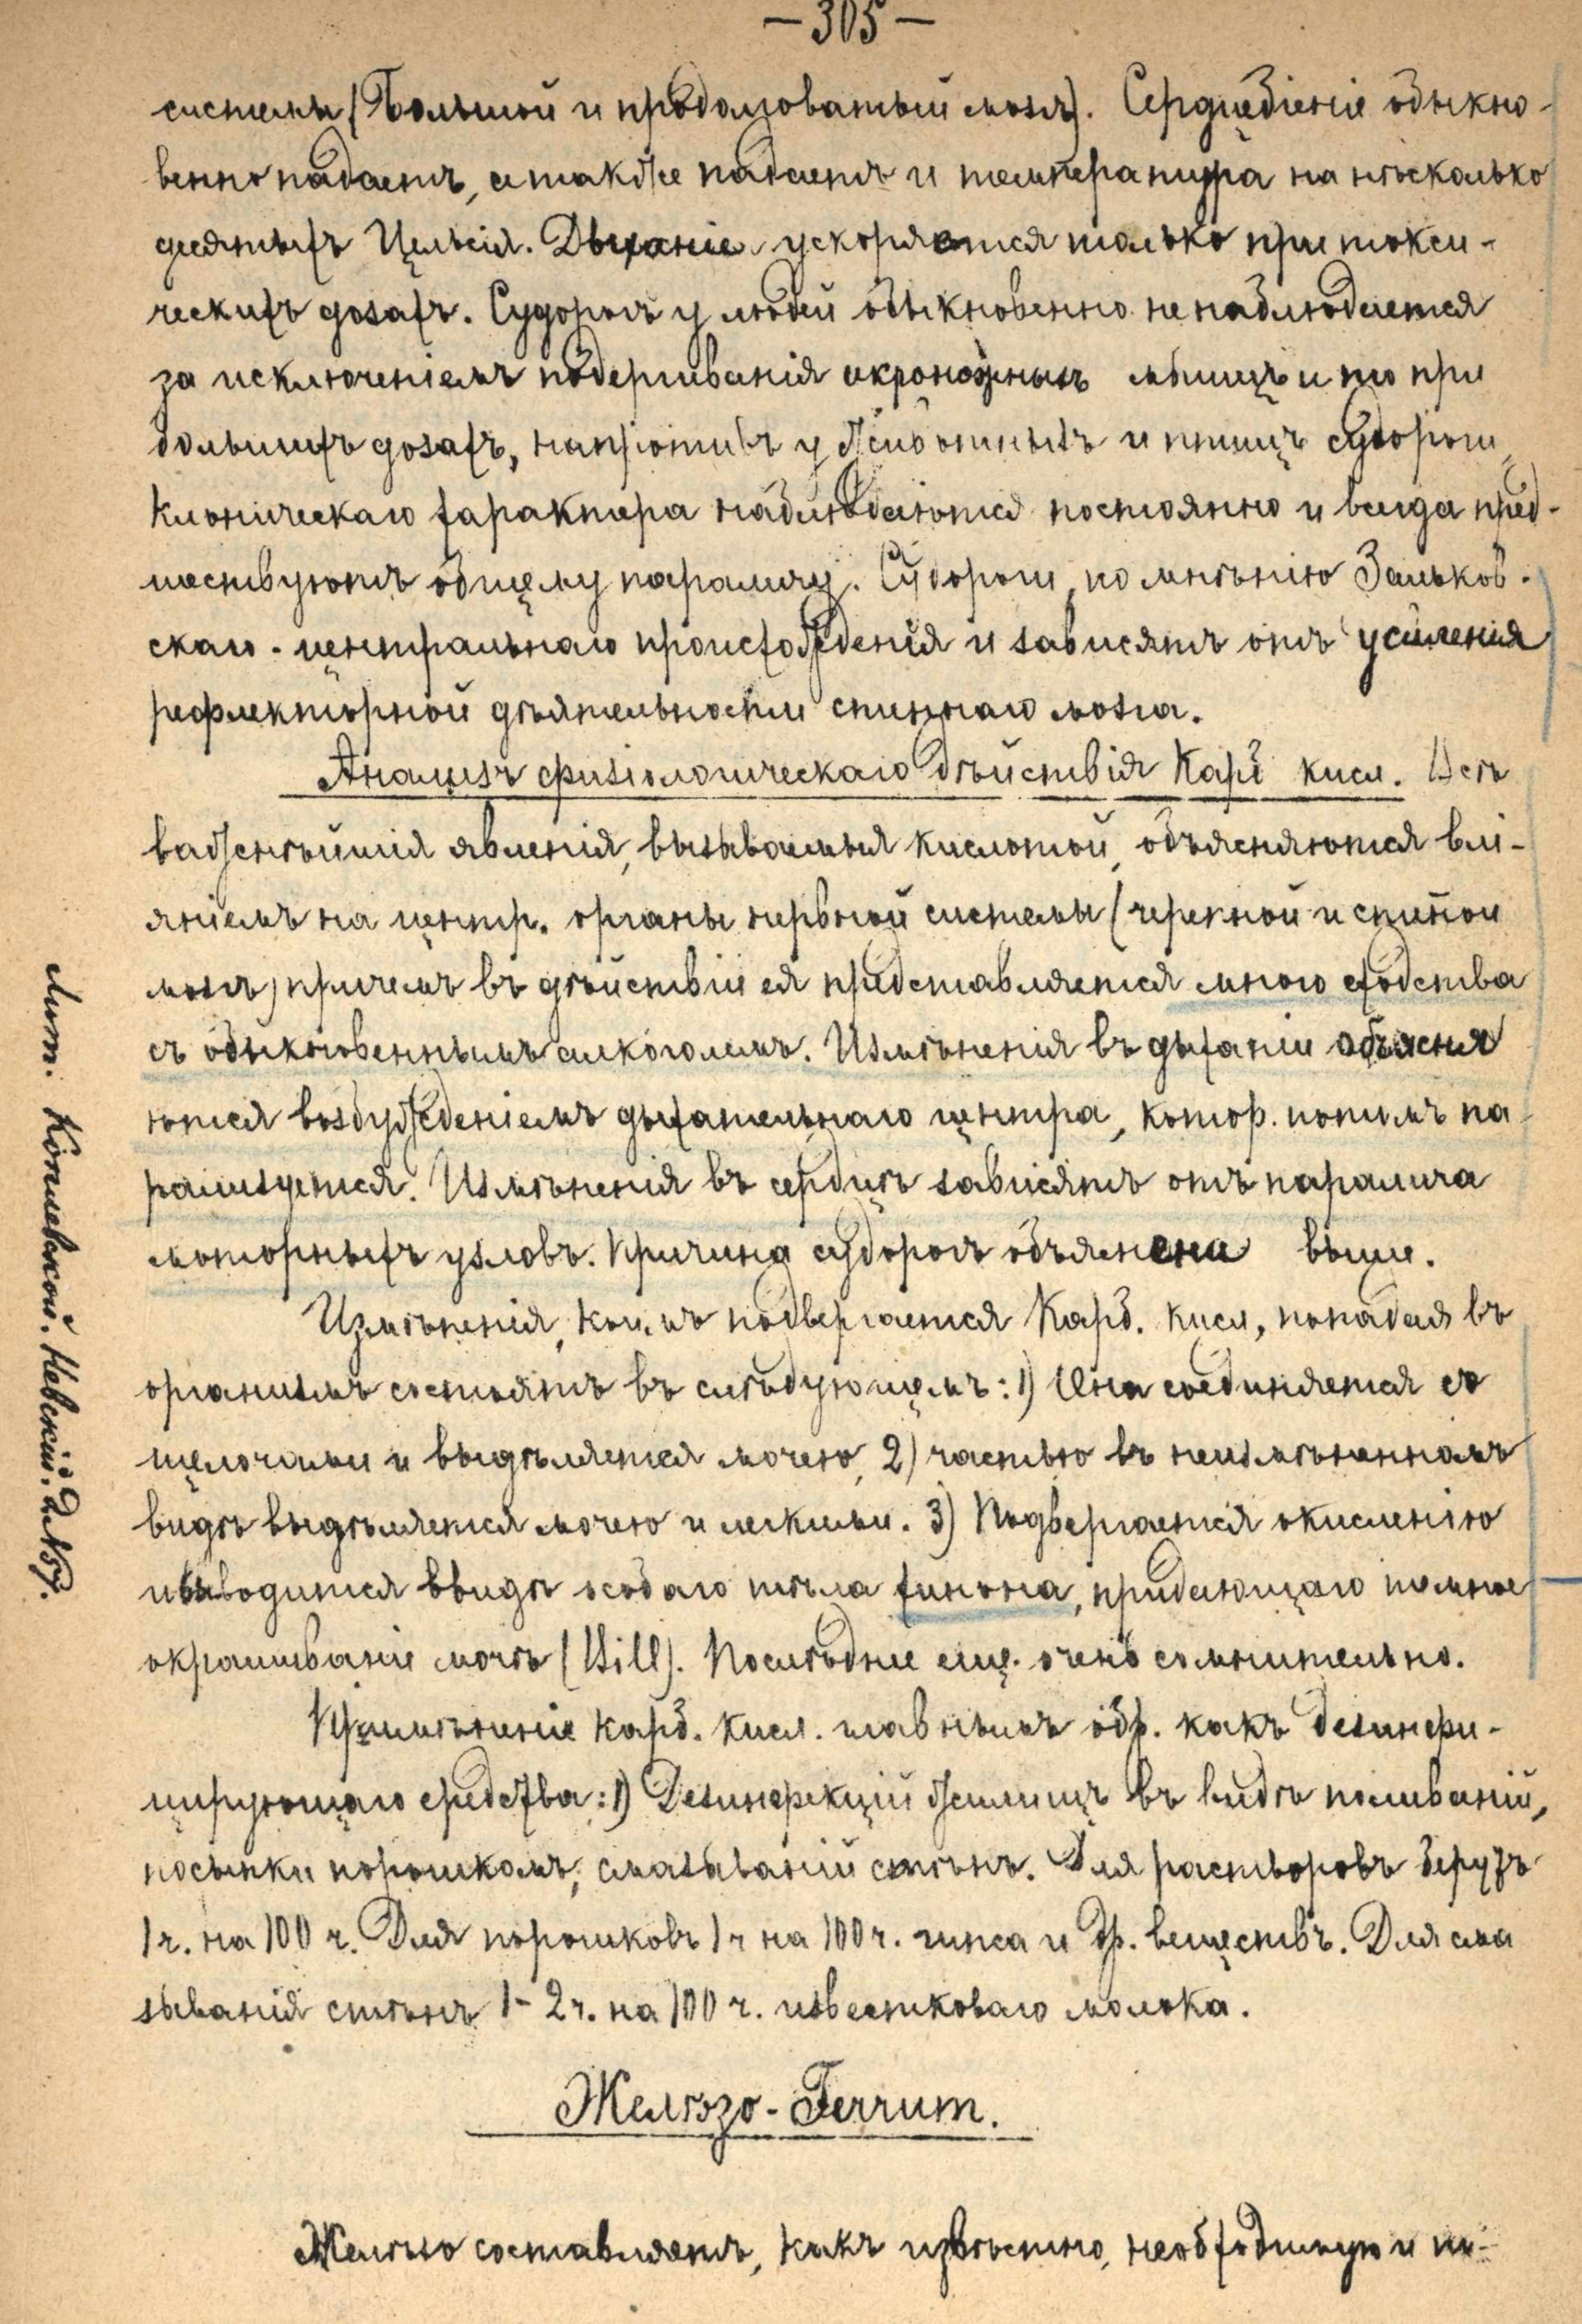 — 305 —
системы (Большой и продолговатый мозгъ). Сердцебіеніе обыкно-
венно падаетъ, а также падаетъ и температура на нѣсколько
десятыхъ Цельсія. Дыханіе ускоряется только при токси-
ческихъ дозахъ. Судорогъ у людей обыкновенно не наблюдается
за исключеніемъ подергиванія икроножныхъ мышцъ и то при
большихъ дозахъ, напротивъ у животныхъ и птицъ судороги
клоническаго характера наблюдаются постоянно и всегда пред-
шествуютъ общему параличу. Судороги, по мнѣнію Зальков-
скаго - центральнаго происхожденія и зависятъ отъ усиленія
рефлекторной дѣятельности спиннаго мозга.
Анализъ физіологическаго дѣйствія Карб кисл. Всѣ
важнѣйшія явленія, вызываемыя кислотой, объясняются влі-
яніемъ на центр. органы нервной системы (черепной и спиной
мозгъ) причемъ въ дѣйствіи ея представляется много сходства
съ обыкновеннымъ алкоголемъ. Измѣненія въ дыханіи объясня
ются возбужденіемъ дыхательнаго центра, котор. потомъ па-
рализуется. Измѣненія въ сердцѣ зависятъ отъ паралича
моторныхъ узловъ. Причина судорогъ объяснена выше.
Измѣненія, коимъ подвергается Карб. кисл, попадая въ
организмъ состоятъ въ слѣдующемъ: 1) Она соединяется съ
щелочами и выдѣляется мочею, 2) частью въ неизмѣненномъ
видѣ выдѣляется мочею и легкими. 3) Подвергается окисленію
и выводится ввидѣ особаго тѣла хинона, придающаго темное
окрашиваніе мочѣ (Hill). Послѣднее еще очень сомнительно.
Примѣненіе карб. кисл. главнымъ обр. какъ дезинфи-
цирующаго средства: 1) Дезинфекціи жилищъ въ видѣ поливаній,
посыпки порошкомъ, смазываній стѣнъ. Для растворовъ берутъ
1 ч. на 100 ч. Для порошковъ 1 ч на 100 ч. гипса и др. веществъ. Для сма
зыванія стѣнъ 1-2 ч. на 100 ч. известковаго молока.
Желѣзо - Ferrum.
Желѣзо составляетъ, какъ извѣстно, необходимую и по-
Лит. Котлевской. Невскій. д. №57.